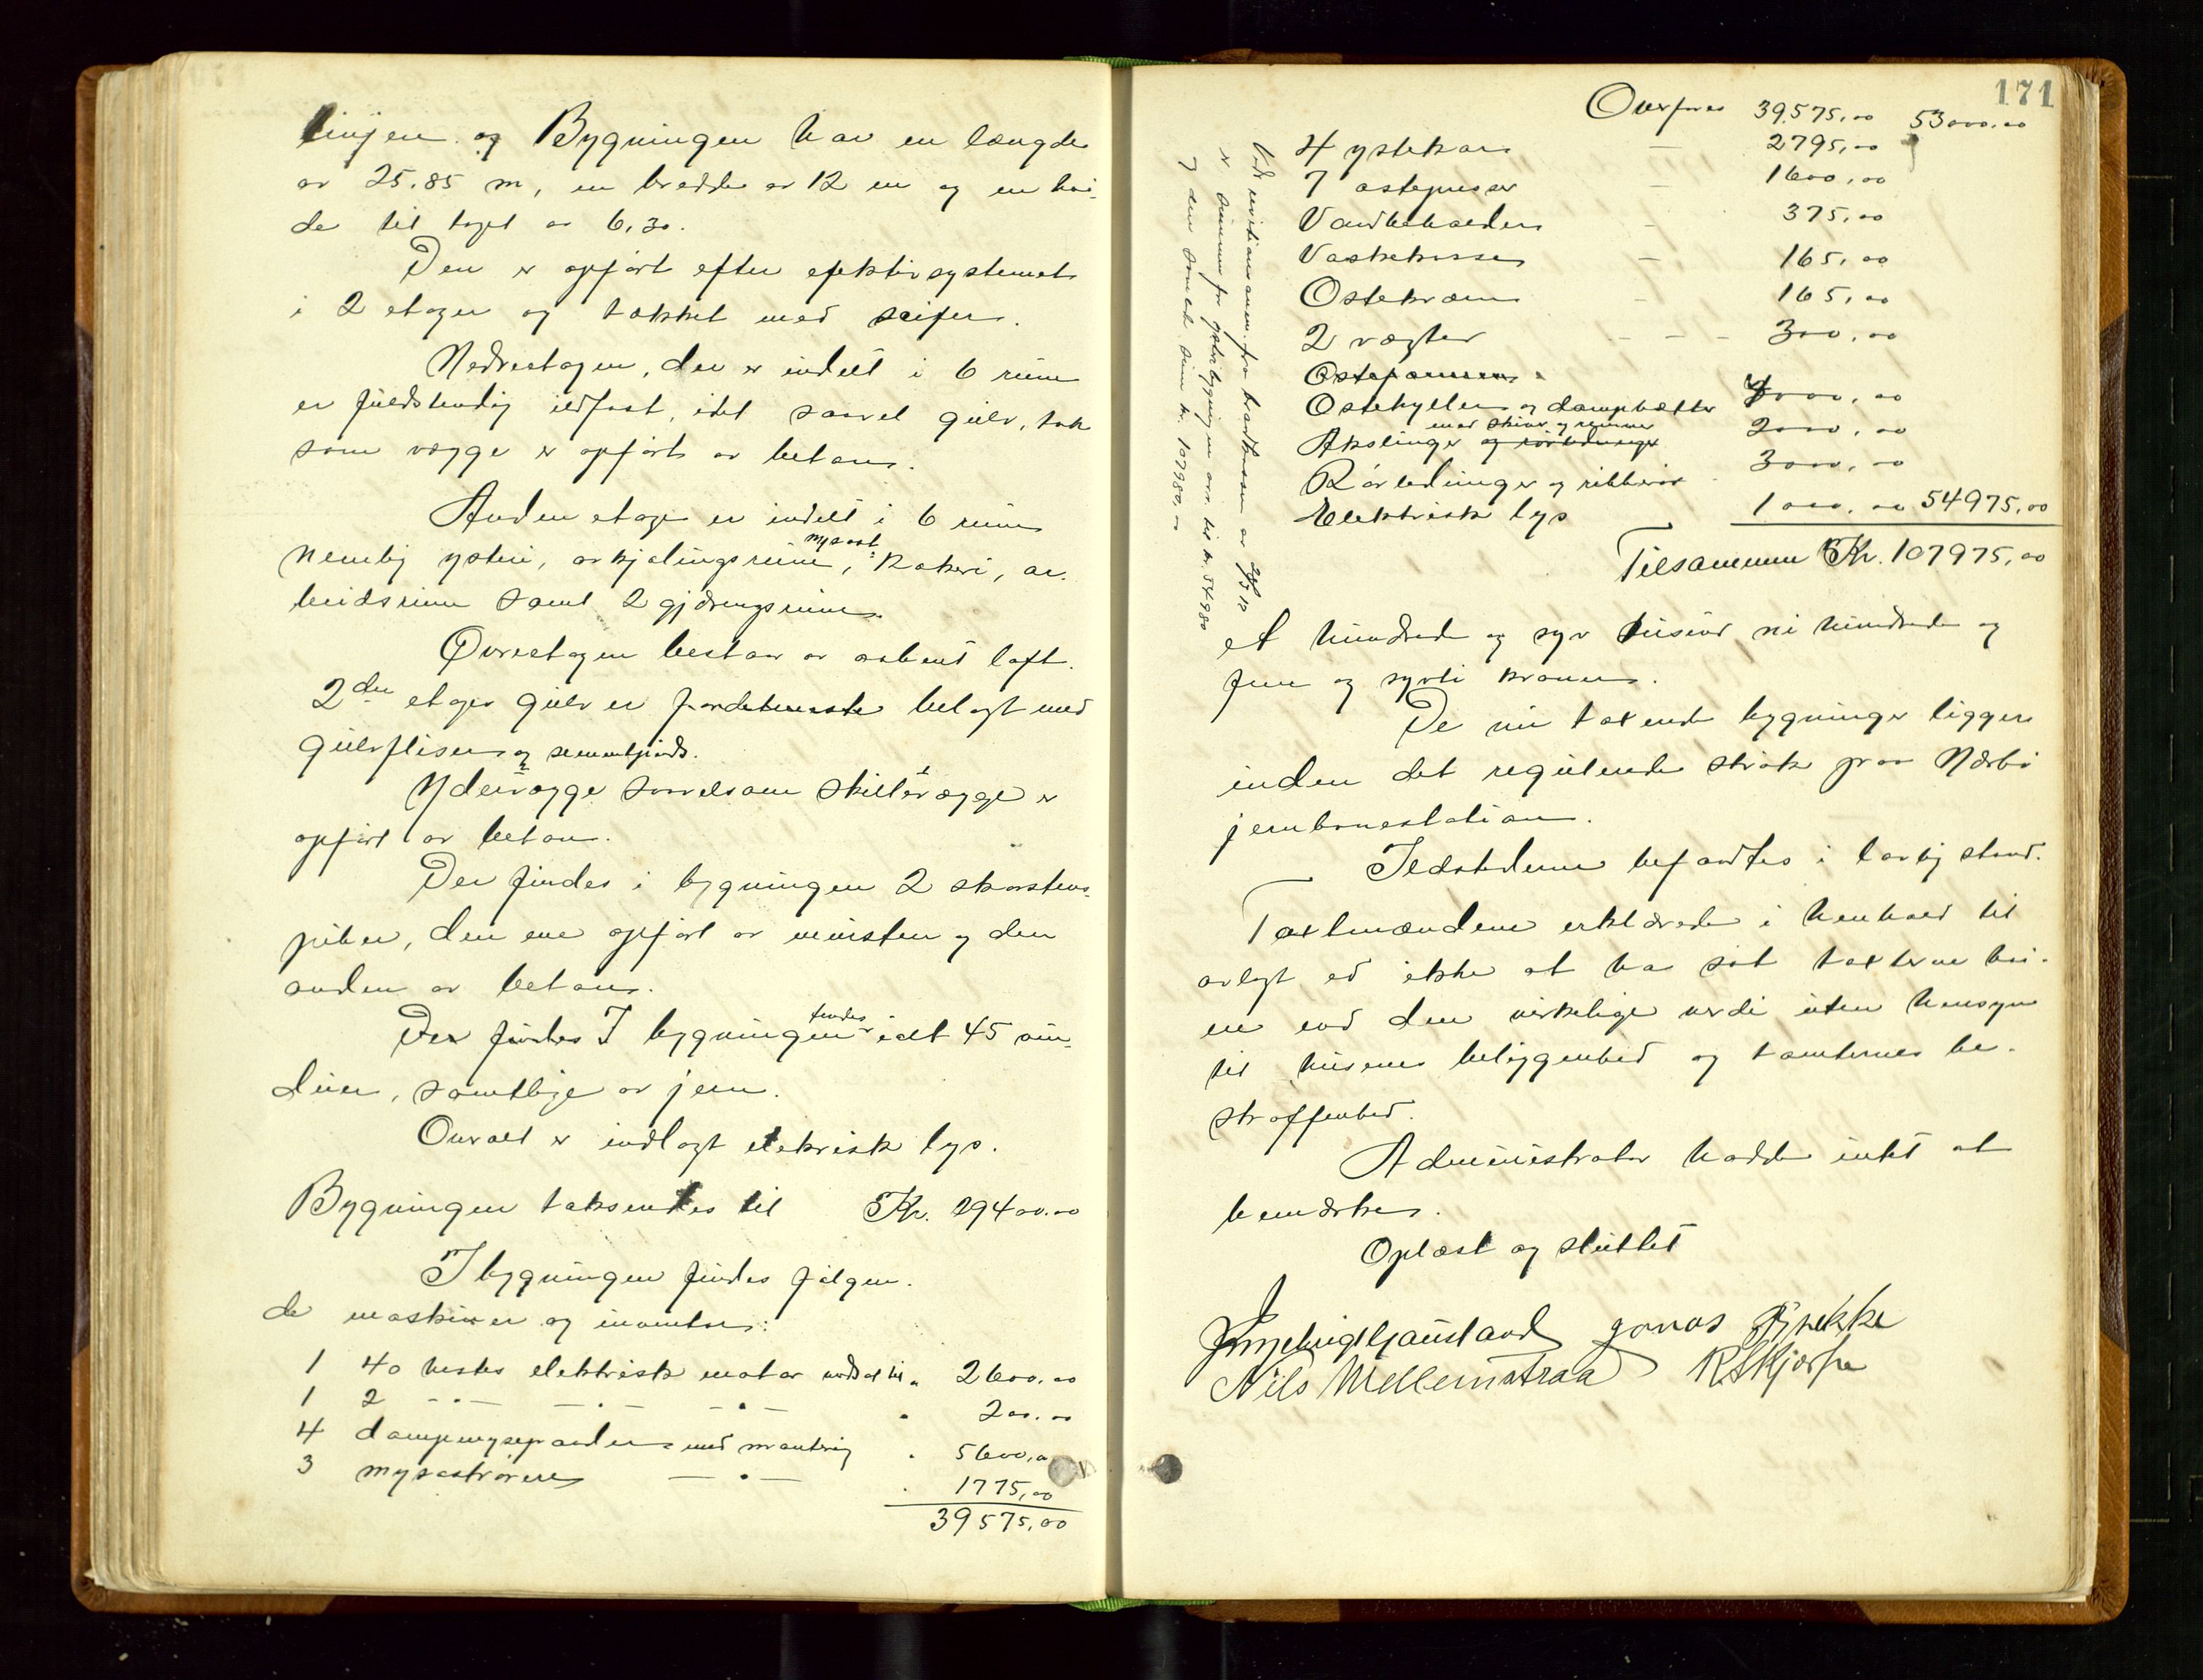 linjen og Bygningen har en længde
av 25.85 m, en bredde av 12 m og en høi-
de til taget av 6,30.
Den er opført efter efektivsystemet
i 2 etager og tækket med skifer.
Nedreetagen, der er indelt i 6 rum
er fuldstendig ildfast, idet saavel gulv, tak
som vægge er opført av beton.
Anden etage er indelt i 6 rum
nemlig ysteri, avkjølingsrum, mysost-kokeri, ar-
beidsrum samt 2 gjæringsrum.
Øvreetagen bestaar av aabent loft.
2den etages gulv er for det meste belagt med
gulvfliser og sementpuds.
Ydervægge saavelsom skillevægge er
opført av beton.
Der findes i bygningen 2 skorstens-
piber, den ene opført av mursten og den
anden av beton.
Der findes I bygningen findes ialt 45 vin-
duer, samtlige av jern.
Overalt er indlagt elekrisk lys.
Bygningen taksertes til Kr. 29400.00
I bygningen findes følgen-
de maskiner og inventar:
1 40 hestes elektrisk motor verdsat til " 2600.00
1 2 -"- -"- -"- " 200.00
4 dampmysepander med montering " 5600,00
3 mysostrørere -"- " 1775,00
39575,00
171
Overføres 39.575,00 53000.00
4 ystekar — 2795,00
7 ostepresser — 1600,00
Vandbeholder - 375,00
Vaskekasse — 165,00
Ostekræm - 165,00
2 vægter - - - 300,00
Osteformer
Ostehylder og dampbætter 4000,00
Akslinger og rørledninger med skiver og remmer 2000,00
Rørledninger og ribberør 3000,00
Elektrisk lys 1000,00 54975,00
Tilsammen Kr. 107975,00
Ved revisionen fra brandkassen av
er summen for fabrikbygningen ovn til kr. 54980
og den samlede sum kr. 107980,00
et hundrede og syv tusind ni hundrede og
fem og sytti kroner.
De nu takserede bygninger ligger
inden det regulerede strøk paa Nærbø
jernbanestation.
Ildstederne befandtes i lovlig stand.
Taxtmændene erklærede i henhold til
avlagt ed ikke at ha sat taxterne høi-
ere end den virkelige verdi uten hensyn
til husenes beliggenhed og tomternes be-
skaffenhed.
Administrator hadde intet at
bemærke.
Oplæst og sluttet
Jonas Brekke
Nils Mellemstraa R Skjærpe